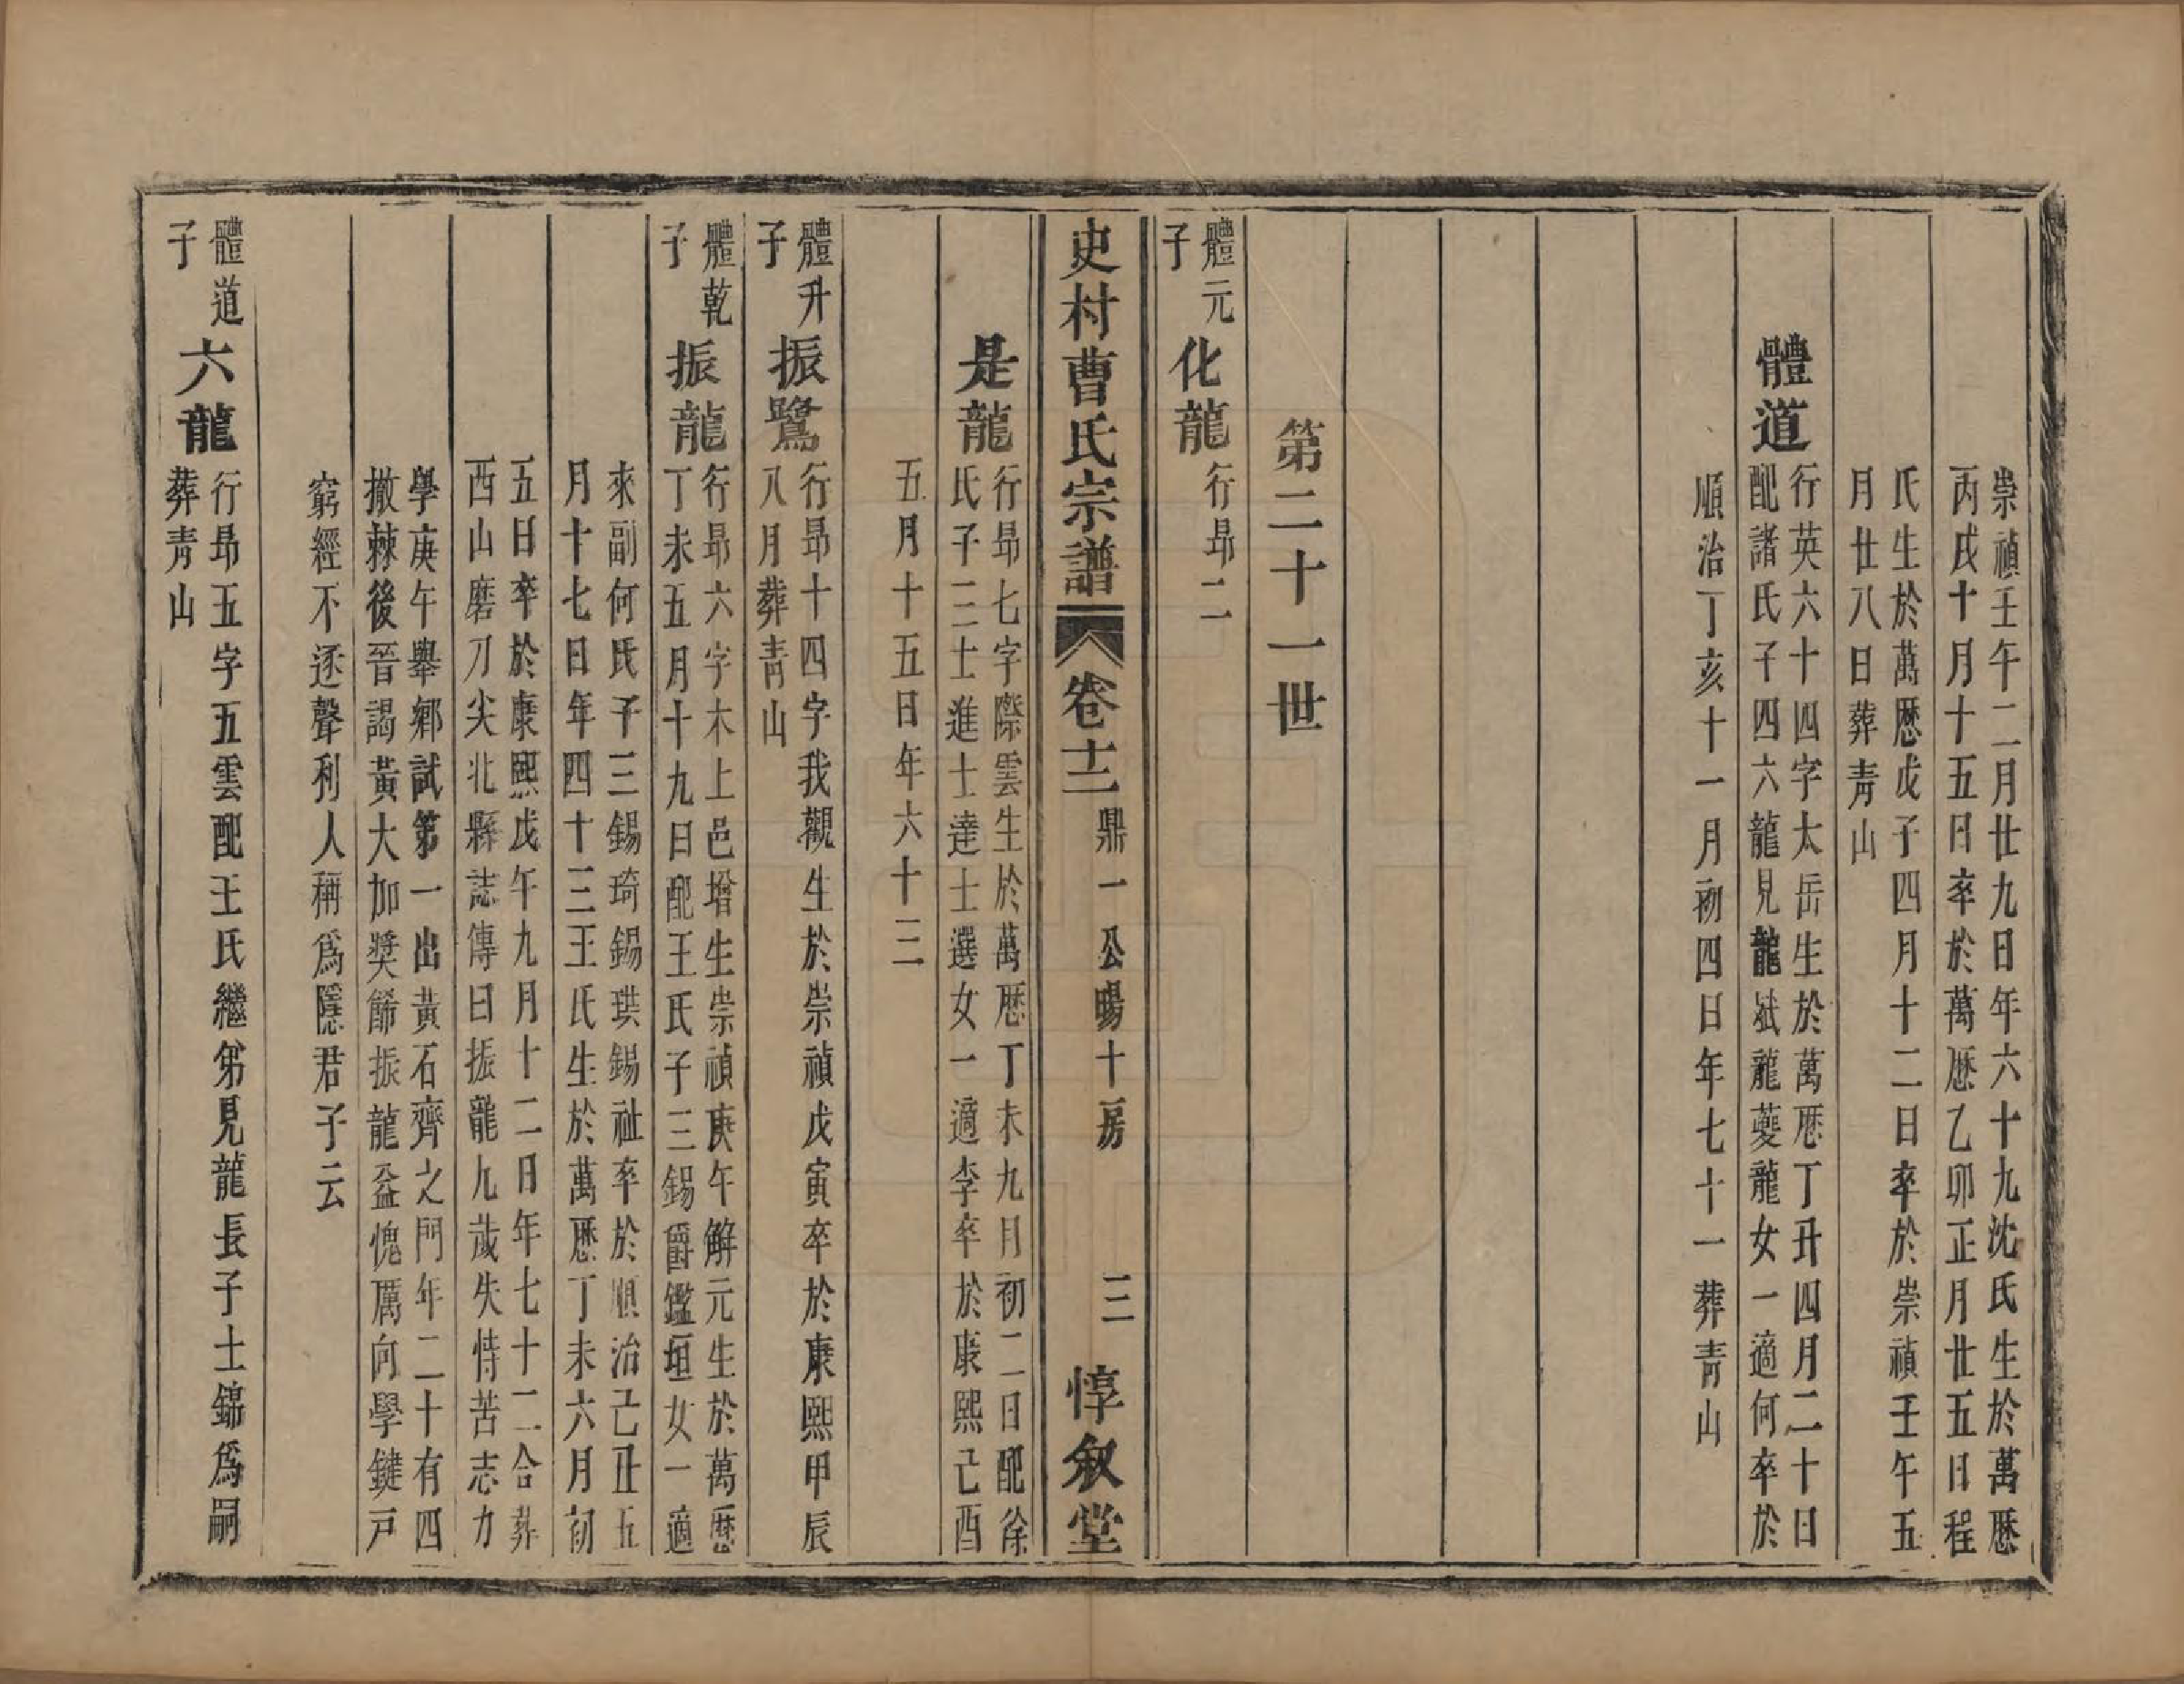 崇禎壬午二月廿九日年六十九沈氏生於萬歷
丙戌十月十五日卒於萬歷乙卯正月廿五日程
氏生於萬歷戊子四月十二日卒於崇禎壬午五
月廿八日葬青山
體道
行英六十四字太岳生於萬歷丁丑四月二十日
配諸氏子四六龍見龍斌龍夔龍女一適何卒於
順治丁亥十一月初四日年七十一葬青山
第二十一世
體元
子
化龍
行昻二
史村曹氏宗譜
卷十二
鼎一公暘十房
三
惇叙堂
是龍
行昻七字際雲生於萬歷丁未九月初二日配徐
氏子三士進士達士選女一適李卒於康熙己酉
五月十五日年六十三
體升
子
振鷺
行昻十四字我觀生於崇禎戊寅卒於康熙甲辰
八月葬青山
體乾
子
振龍
行昻六字木上邑增生崇禎庚午解元生於萬歷
丁未五月十九日配王氏子三錫爵鑑垣女一適
來副何氏子三錫琦錫珙錫祉卒於順治己丑五
月十七日年四十三王氏生於萬歷丁未六月初
五日卒於康熙戊午九月十二日年七十二合葬
西山磨刀尖北縣誌傳曰振龍九歲失恃苦志力
學庚午舉鄉試第一出黃石齊之門年二十有四
撤棘後晉謁黃大加獎飾振龍益愧厲向學鍵戸
窮經不逐聲利人稱爲隱君子云
體道
子
六龍
行昻五字五雲配王氏繼弟見龍長子士錦爲嗣
葬青山